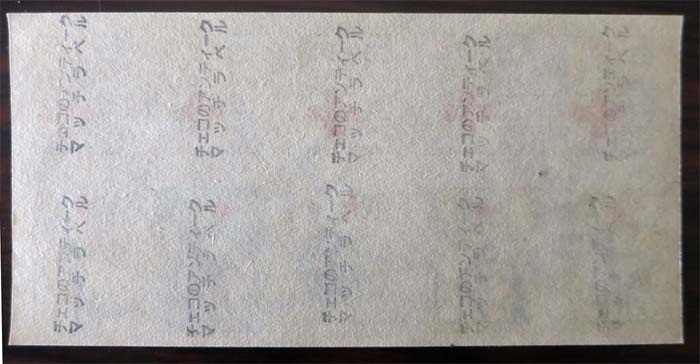 チェコのアンティーク
マッチラベル
チェコのアンティーク
マッチラベル
チェコのアンティーク
マッチラベル
チェコのアンティーク
マッチラベル
チェコのアンティーク
マッチラベル
チェコのアンティーク
マッチラベル
チェコのアンティーク
マッチラベル
チェコのアンティーク
マッチラベル
チェコのアンティーク
マッチラベル
チェコのアンティーク
マッチラベル